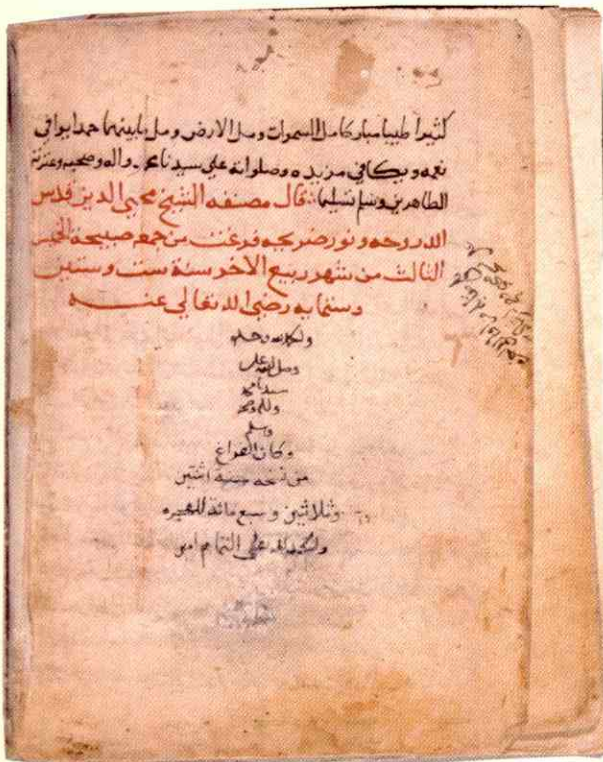 كثيرا طيبا مباركا ملا السموات ومل الارض ومل ما بينهما حمدا يوافي
نعمه ويكافي مزيده وصلواته على سيدنا محمد واله وصحبه وعترته
الطاهرين وسلم تسليما قال مصنفه الشيخ محيي الدين قدس
الله روحه ونور ضريحه فرغت من جمعه صبيحة الخميس
الثالث من شهر ربيع الاخر سنة ست وستين
وستمايه رضي الله تعالى عنه
والحمد لله وحده
وصل الله على
سيدنا محمد
واله وصحبه
وسلم
وكان الفراغ
من نسخه سنة اثنتين
وثلاثين وسبع مائة للهجره
والحمد لله على التمام امين